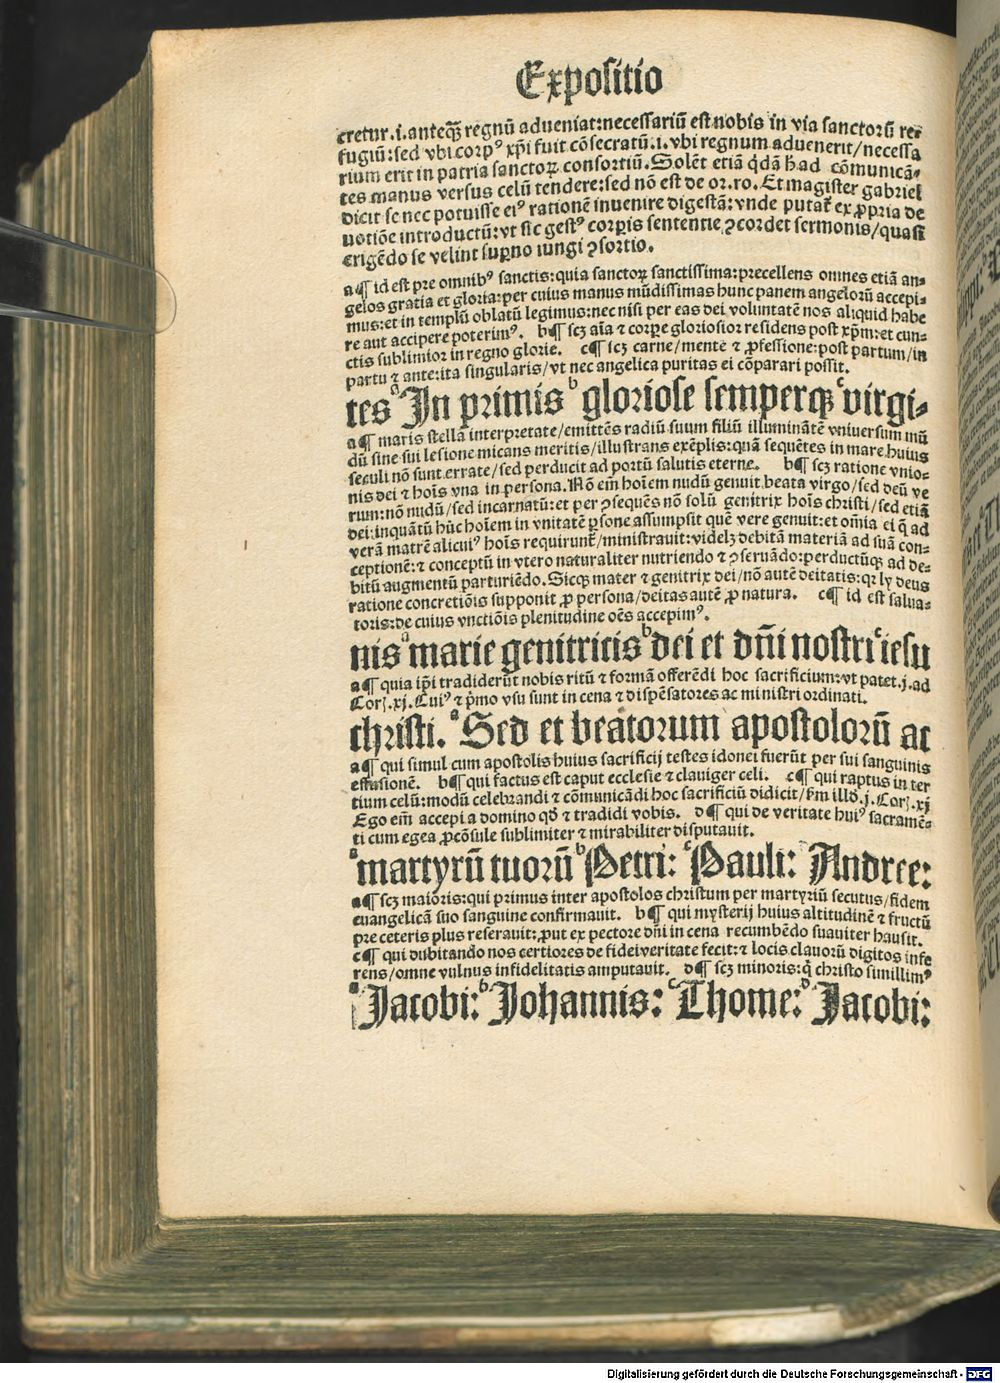 Expositio
cretur.i.anteqꝫ regnū adueniat:necessariū est nobis in via sanctorū re-
fugiū:sed vbi corpꝰ xp̄i fuit cōsecratū.i.vbi regnum aduenerit/necessa
rium erit in patria sanctoꝝ consortiū. Solēt etiā q̄dā h̄ ad cōmunicā-
tes manus versus celū tendere:sed nō est de or.ro. Et magister gabriel
dicit se nec potuisse eiꝰ rationē inuenire digestā:vnde putat̄ ex ꝓpria de
uotiōe introductū:vt sic gestꝰ corꝑis sententie ꝯcordet sermonis/quasi
erigēdo se velint suꝑno iungi ꝯsortio.
a¶ id est pre omnibꝰ sanctis:quia sanctoꝝ sanctissima:precellens omnes etiā an-
gelos gratia et gloria:per cuius manus mūdissimas hunc panem angelorū accepi-
mus:et in templū oblatū legimus:nec nisi per eas dei voluntatē nos aliquid habe
re aut accipere poterimꝰ. b¶ scꝫ aīa ⁊ corpe gloriosior residens post xp̄m:et cun-
ctis sublimior in regno glorie. c¶ scꝫ carne/mente ⁊ ꝓfessione:post partum/in
partu ⁊ ante:ita singularis/vt nec angelica puritas ei cōparari possit.
tes a In primis b gloriose semperqꝫ c virgi-
a¶ maris stella interpretate/emittēs radiū suum filiū illuminātē vniuersum mū
dū sine sui lesione micans meritis/illustrans exēplis:quā sequētes in mare huius
seculi nō sunt errate/sed perducit ad portū salutis eterne. b¶ scꝫ ratione vnio-
nis dei ⁊ hoīs vna in persona. Nō em̄ hoīem nudū genuit beata virgo/sed deū ve
rum:nō nudū/sed incarnatū:et per ꝯsequēs nō solū genitrix hoīs christi/sed etiā
dei:inquātū hūc hoīem in vnitatē ꝑsone assumpsit quē vere genuit:et om̄ia ei q̄ ad
verā matrē alicuiꝰ hoīs requirunt̄/ministrauit:videlꝫ debitā materiā ad suā con-
ceptionē:⁊ conceptū in vtero naturaliter nutriendo ⁊ ꝯseruādo:perductūqꝫ ad de-
bitū augmentū parturiēdo. Sicqꝫ mater ⁊ genitrix dei/nō autē deitatis:qꝛ ly deus
ratione concretiōis supponit ꝓ persona/deitas autē ꝓ natura. c¶ id est salua-
toris:de cuius vnctiōis plenitudine oēs accepimꝰ.
nis a marie genitricis b dei et dn̄i nostri c iesu
a¶ quia ip̄i tradiderūt nobis ritū ⁊ formā offerēdi hoc sacrificium:vt patet.j.ad
Corꝭ.xj. Cuiꝰ ⁊ p̄mo vsu sunt in cena ⁊ dispēsatores ac ministri ordinati.
christi. a Sed et beatorum apostolorū ac
a¶ qui simul cum apostolis huius sacrificij testes idonei fuerūt per sui sanguinis
effusionē. b¶ qui factus est caput ecclesie ⁊ clauiger celi. c¶ qui raptus in ter
tium celū:modū celebrandi ⁊ cōmunicādi hoc sacrificiū didicit/ẜm illd̄.j.Corꝭ.xj
Ego em̄ accepi a domino qd̄ ⁊ tradidi vobis. d¶ qui de veritate huiꝰ sacramē-
ti cum egea ꝓcōsule sublimiter ⁊ mirabiliter disputauit.
a martyrū tuorū b Petri: c Pauli: d Andree:
a¶ scꝫ maioris:qui primus inter apostolos christum per martyriū secutus/fidem
euangelicā suo sanguine confirmauit. b¶ qui mysterij huius altitudinē ⁊ fructū
pre ceteris plus reserauit:ꝓut ex pectore dn̄i in cena recumbēdo suauiter hausit.
c¶ qui dubitando nos certiores de fidei veritate fecit:⁊ locis clauorū digitos infe
rens/omne vulnus infidelitatis amputauit. d¶ scꝫ minoris:q̇ christo simillimꝰ
a Jacobi: b Johannis: c Thome: d Jacobi:
Digitalisierung gefördert durch die Deutsche Forschungsgemeinschaft - DFG